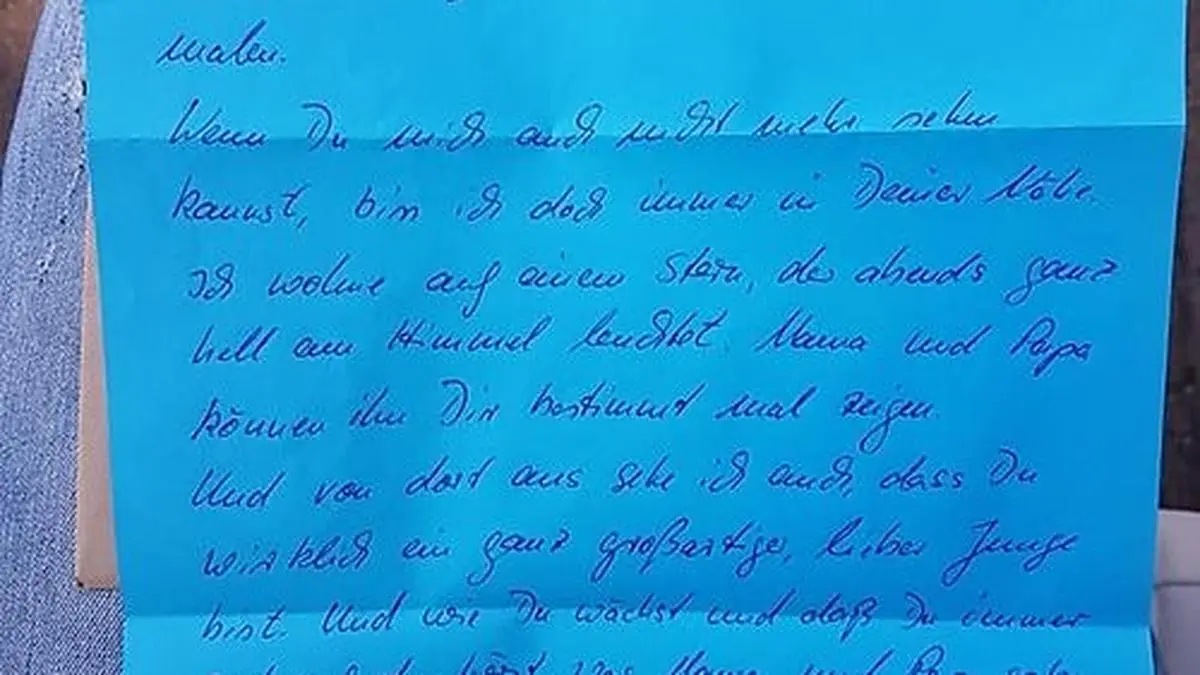 malen.
Wenn Du mich auch nicht mehr sehen
kannst, bin ich doch immer in Deiner Nähe.
Ich wohne auf einem Stern, der abends ganz
hell am Himmel leuchtet. Mama und Papa
können ihn Dir bestimmt mal zeigen.
Und von dort aus sehe ich auch, dass Du
wirklich ein ganz großartiger, lieber Junge
bist. Und wie Du wächst und daß Du immer
hörst was Mama und Papa